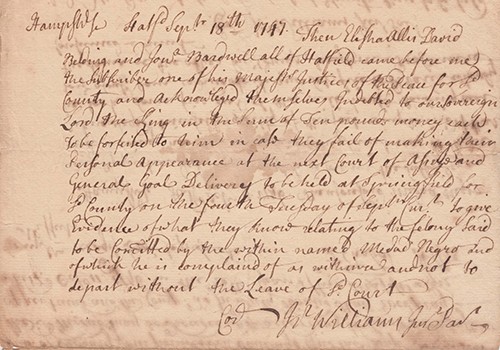 Hampshr ss Hatfd Septr 18th 1747. Then Elisha Allis David
Belding and Jona Bardwell all of Hatfield came before me
the Subscriber one of his Majestys Justices of the Peace for sd
County and Acknowledged themselves Indebted to our Sovereign
Lord the King in the Sum of Ten pounds money each
to be forfeited to him in case they fail of making their
Personal Appearance at the next Court of Assize and
General Goal Delivery to be held at Springfield for
sd County on the fourth Tuesday of Septr Inst to give
Evidence of what they know relating to the felony Said
to be Comitted by the within named Medad Negro and
of which he is complained of as within and not to
depart without the Leave of sd Court
Cor Is Williams Jus Pac